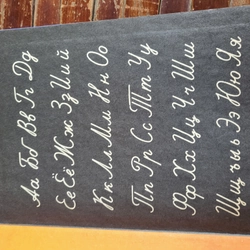 Аа Бб Вв Гг Дд
Ее Ёё Жж Зз Ии Йй
Кк Лл Мм Нн Оо
Пп Рр Сс Тт Уу
Фф Хх Цц Чч Шш
Щщ ъ ы ь Ээ Юю Яя